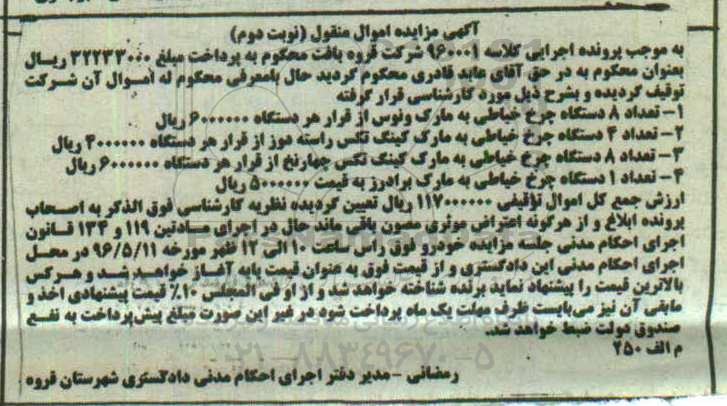 آگهی مزایده اموال منقول (نوبت دوم)
به موجب پرونده اجرایی کلاسه ۹۶۰۰۰۱ شرکت قروه بافت محکوم به پرداخت مبلغ ۳۲۲۳۳۰۰۰ ریال
بعنوان محکوم به در حق آقای عابد قادری محکوم گردید حال بامعرفی محکوم له اموال آن شرکت
توقیف گردیده و بشرح ذیل مورد کارشناسی قرار گرفته
۱- تعداد ۸ دستگاه چرخ خیاطی به مارک ونوس از قرار هر دستگاه ۶۰۰۰۰۰۰ ریال
۲- تعداد ۴ دستگاه چرخ خیاطی به مارک کینگ تکس راسته دوز از قرار هر دستگاه ۴۰۰۰۰۰۰ ریال
۳- تعداد ۸ دستگاه چرخ خیاطی به مارک کینگ تکس چهارنخ از قرار هر دستگاه ۶۰۰۰۰۰۰ ریال
۴- تعداد ۱ دستگاه چرخ خیاطی به مارک برادرز به قیمت ۵۰۰۰۰۰۰ ریال
ارزش جمع کل اموال توقیفی ۱۱۷۰۰۰۰۰۰ ریال تعیین گردیده نظریه کارشناسی فوق الذکر به اصحاب
پرونده ابلاغ و از هرگونه اعتراض موثری مصون باقی ماند حال در اجرای مادتین ۱۱۹ و ۱۳۴ قانون
اجرای احکام مدنی جلسه مزایده خودرو فوق راس ساعت ۱۰ الی ۱۲ ظهر مورخه ۹۶/۵/۱۱ در محل
اجرای احکام مدنی این دادگستری و از قیمت فوق به عنوان قیمت پایه آغاز خواهد شد و هرکس
بالاترین قیمت را پیشنهاد نماید برنده شناخته خواهد شد و از او فی المجلس ۱۰٪ قیمت پیشنهادی اخذ و
مابقی آن نیز می‌بایست ظرف مهلت یک ماه پرداخت شود در غیر این صورت مبلغ پیش‌پرداخت به نفع
صندوق دولت ضبط خواهد شد.
م الف ۲۵۰
۰۲۱-۸۸۳۴۹۶۷۰-۵
رمضانی -مدیر دفتر اجرای احکام مدنی دادگستری شهرستان قروه